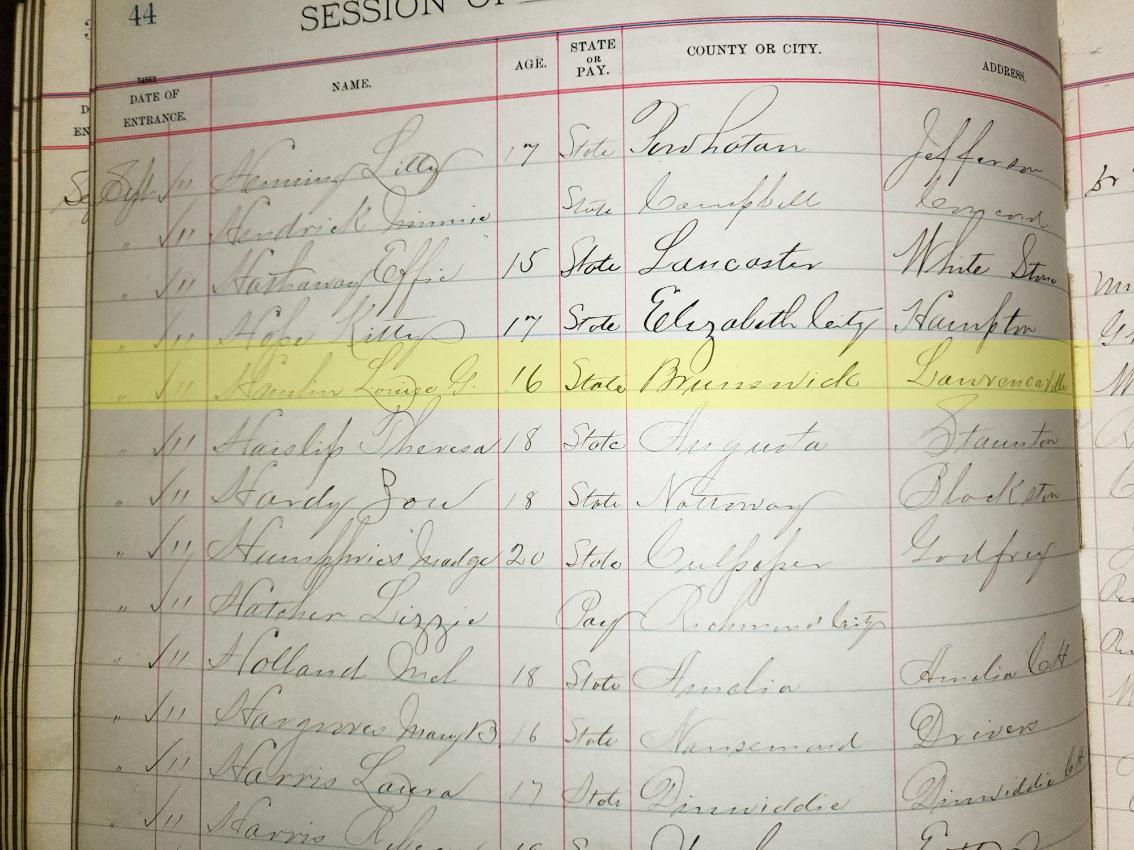 44 SESSION OF
74563
DATE OF ENTRANCE. NAME. AGE. STATE OR PAY. COUNTY OR CITY. ADDRESS.
Sept 11 Henning Lilly 17 State Powhatan Jefferson
" 11 Hendrick Minnie State Campbell Concord
" 11 Hathaway Effie 15 State Lancaster White Stone
" 11 Hope Kitty 17 State Elizabeth City Hampton
" 11 Hamlin Louise G. 16 State Brunswick Lawrenceville
" 11 Haislip Theresa 18 State Augusta Staunton
" 11 Hardy Zou 18 State Nottoway Blackstone
" 11 Humphries Madge 20 State Culpeper Godfrey
" 11 Hatcher Lizzie Pay Richmond City
" 11 Holland Mel 18 State Amelia Amelia CH
" 11 Hargroves Mary B 16 State Nansemond Drivers
" 11 Harris Laura 17 State Dinwiddie Dinwiddie CH
11 Harris